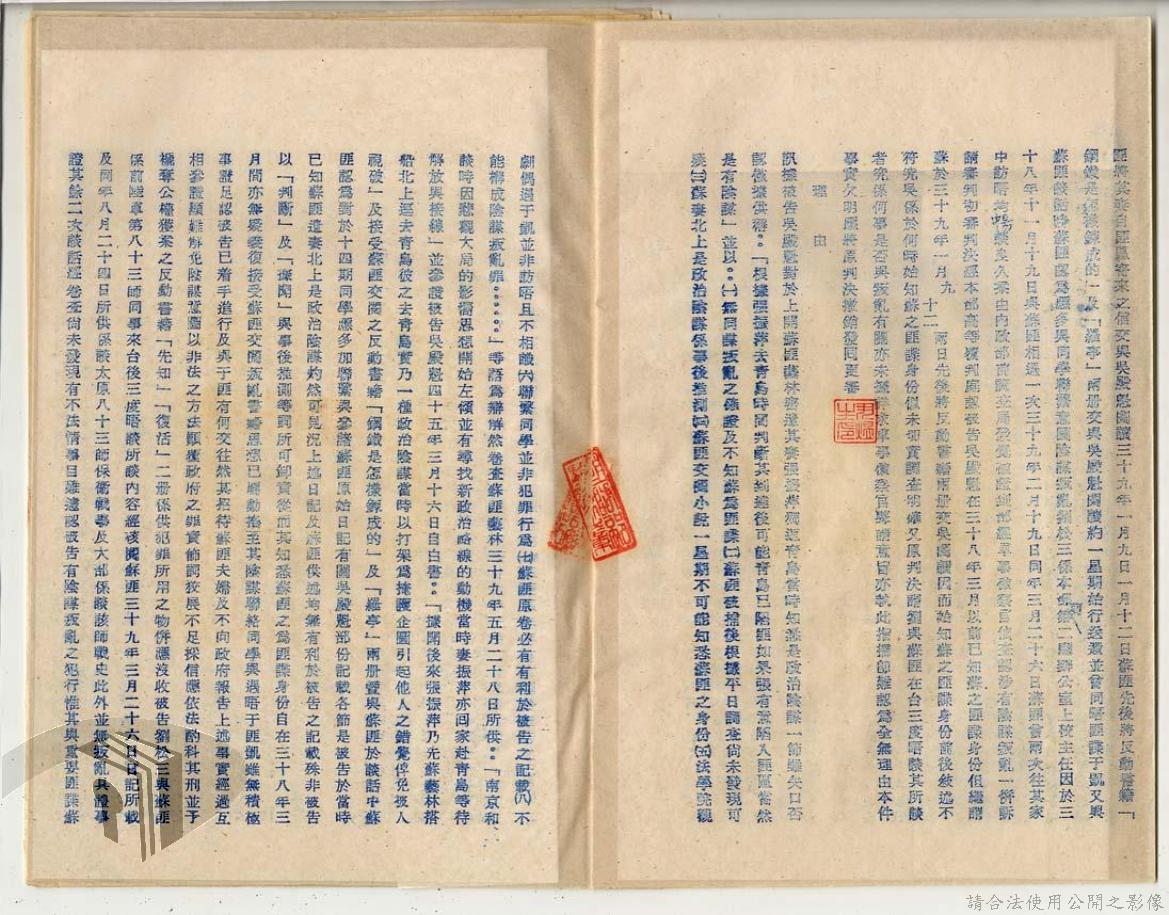 匪將其妻自匪區寄來之信交與吳殿魁閱讀三十九年一月九日一月十二日蘇匪先後將反動書籍「
鋼鐵是怎樣鍊成的」及「羅亭」兩册交與吳殿魁閱讀約一星期始行送還並曾同晤匪諜于凱又與
蘇匪談話時蘇匪認為應多與同學聯繫意圖陰謀叛亂劉松三係本部第二廳辦公室上校主任因於三
十八年十一月十九日與蘇匪相遇一次三十九年二月十九日同年三月二十六日蘇匪曾兩次往其家
中訪晤均暢談良久案由內政部前調查局發覺被證到部經軍事檢察官偵查認涉有陰謀叛亂一併訴
請審判初審判決經本部高等覆判庭認被告吳殿魁在三十八年三月以前已知蘇之匪諜身份但繼謂
蘇於三十九年一月九十二兩日先後將反動書籍兩册交與吳閱讀因而始知蘇之匪諜身份前後敘述不
符究吳係於何時始知蘇之匪諜身份似未切實調查明確又原判決謂劉與蘇匪在台三度晤談其所談
者究係何事是否與叛亂有關亦未據 軍事檢察官聲請意旨亦執此指摘即難認為全無理由本件
事實欠明應將原判決撤銷發回更審
理由
訊據被告吳殿魁對於上開蘇匪藝林密遣其妻張振萍潛返青島當時知悉是政治陰謀一節雖矢口否
認但據供稱:「根據張振萍去青島時間判斷其到達後可能青島已陷匪如果張有意陷入匪區當然
是有陰謀」並以:㈠無同謀叛亂之係證及不知蘇為匪諜㈡蘇匪被捕後根據平日調查尚未發現可
疑㈢蘇妻北上是政治陰謀係事後推測㈣蘇匪交閱小說一星期不可能知悉蘇匪之身份㈤法學院觀
劇偶遇于凱並非訪晤且不相識㈥聯繫同學並非犯罪行為㈦蘇匪原卷必有有利於被告之記載㈧不
能構成陰謀叛亂罪……」等語為辯解然卷查蘇匪藝林三十九年五月二十八日所供:「南京和
談時因悲觀大局的影響思想開始左傾並有尋找新政治路線的動機當時妻振萍亦回家赴青島等待
解放與接線」並參證被告吳殿魁四十五年三月十六日自白書:「據聞後來張振萍乃先蘇藝林搭
船北上逕去青島彼之去青島實乃一種政治陰謀當時以打架為掩護企圖引起他人之錯覺俾免被人
視破」及接受蘇匪交閱之反動書籍「鋼鐵是怎樣鍊成的」及「羅亭」兩册暨與蘇匪於談話中蘇
匪認為對於十四期同學應多加聯繫與參諸蘇匪原始日記有關吳殿魁部份記載各節是被告於當時
已知蘇匪遣妻北上是政治陰謀灼然可見況上述日記及蘇匪供述均無有利於被告之記載殊非被告
以「判斷」及「據聞」與事後推測等詞所可卸責從而其知悉蘇匪之為匪諜身份自在三十八年三
月間亦無疑義復接受蘇匪交閱叛亂書籍思想已轉動搖至其陰謀聯絡同學與遇晤于匪凱雖無積極
事證足認被告已着手進行及與于匪有何交往然其招待蘇匪夫婦及不向政府報告上述事實經過互
相參證顯難解免陰謀意圖以非法之方法顛覆政府之罪責飾詞狡展不足採信應依法酌科其刑並予
褫奪公權獲案之反動書籍「先知」「復活」二册係供犯罪所用之物併應沒收被告劉松三與蘇匪
係前陸軍第八十三師同事來台後三度晤談所談內容經被閱蘇匪三十九年三月二十六日日記所載
及同年八月二十四日所供係談太原八十三師保衛戰事及大部係談該師戰史此外並無叛亂具體事
證其餘二次談話經卷查尚未發現有不法情事自難遽認被告有陰謀叛亂之犯行惟其與重要匪諜蘇
請合法使用公開之影像